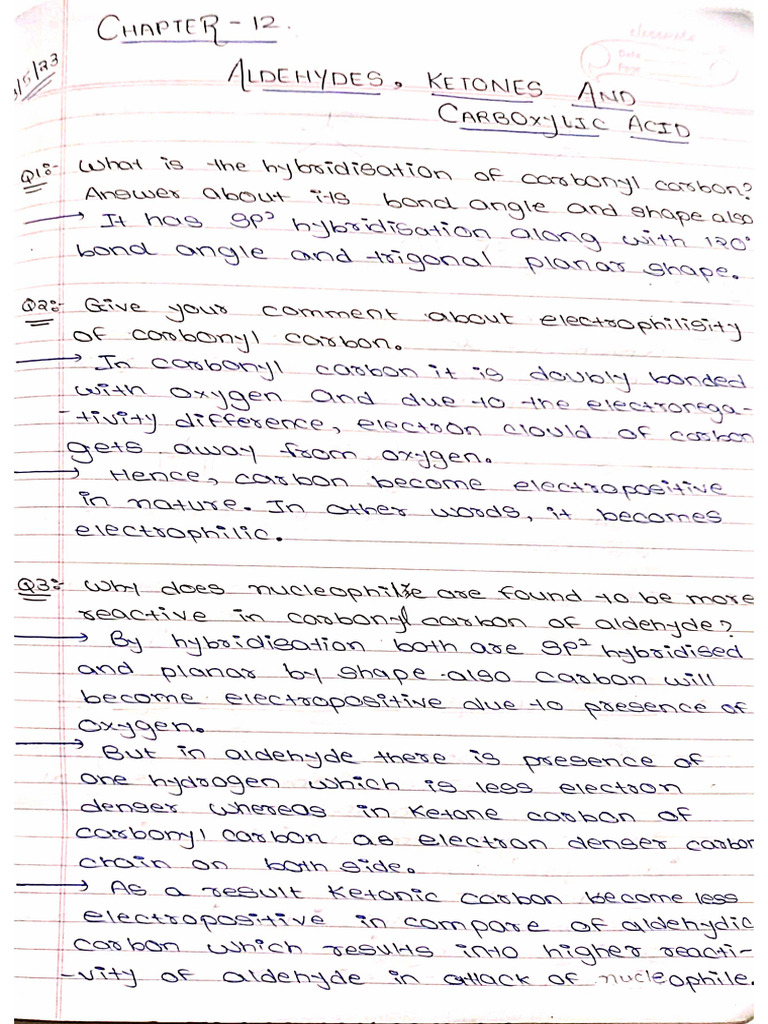 CHAPTER - 12.
/5/23
ALDEHYDES, KETONES AND
CARBOXYLIC ACID
Q1:- What is the hybridisation of carbonyl carbon?
Answer about its bond angle and shape also
→ It has SP² hybridisation along with 120°
bond angle and trigonal planar shape.
Q2:- Give your comment about electrophilisity
of carbonyl carbon.
→ In carbonyl carbon it is doubly bonded
with oxygen and due to the electronega-
-tivity difference, electron clould of carbon
gets away from oxygen.
→ Hence, carbon become electropositive
in nature. In other words, it becomes
electrophilic.
Q3:- Why does nucleophile are found to be more
reactive in carbonyl carbon of aldehyde?
→ By hybridisation both are SP² hybridised
and planar by shape. also carbon will
become electropositive due to presence of
oxygen.
→ But in aldehyde there is presence of
one hydrogen which is less electron
denser whereas in Ketone carbon of
carbonyl carbon as electron denser carbon
chain on both side.
→ As a result Ketonic carbon become less
electropositive in compare of aldehydic
carbon which results into higher reacti-
-vity of aldehyde in attack of nucleophile.